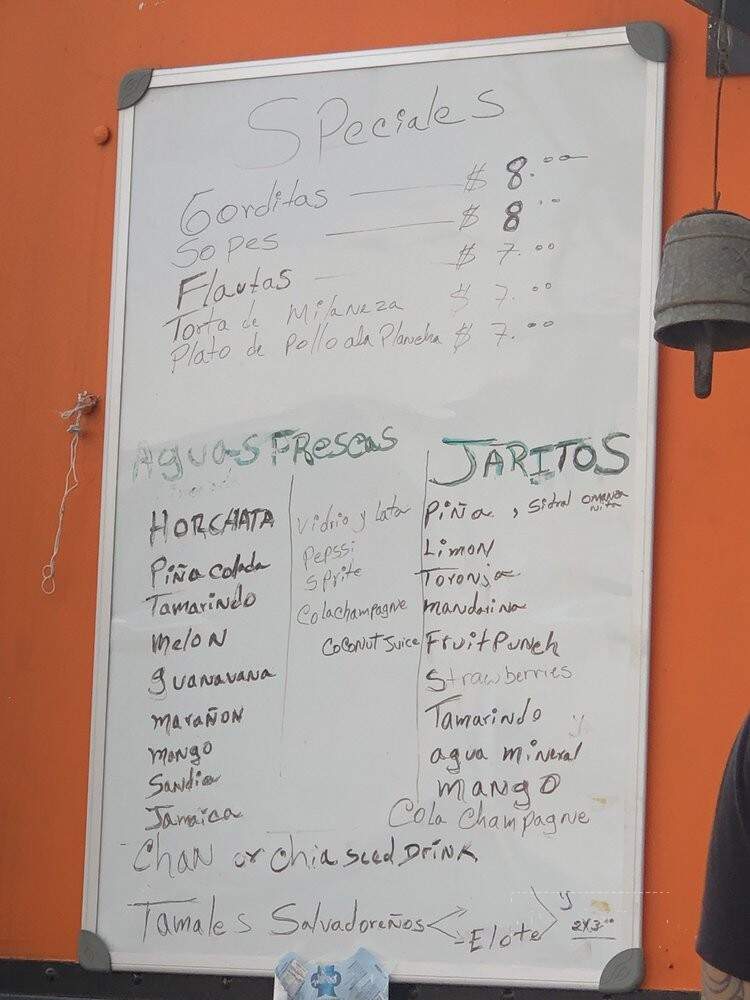 SPeciales
Gorditas $ 8.00
Sopes $ 8
Flautas $ 7.00
Torta de Milaneza $ 7.00
Plato de Pollo ala Plancha $ 7.00
Aguas FRescas
HORCHATA
Piña Colada
Tamarindo
Melon
guanavana
marañon
mango
Sandia
Jamaica
Vidrio y Lata
Pepssi
Sprite
Colachampagne
Coconut Juice
JARITOS
Piña, Sidral
Limon
Toronja
mandarina
Fruit Punch
Strawberries
Tamarindo
agua mineral
mango
Cola Champagne
Chan or chia seed DRINK
Tamales Salvadoreños
-Elote
2x3.00